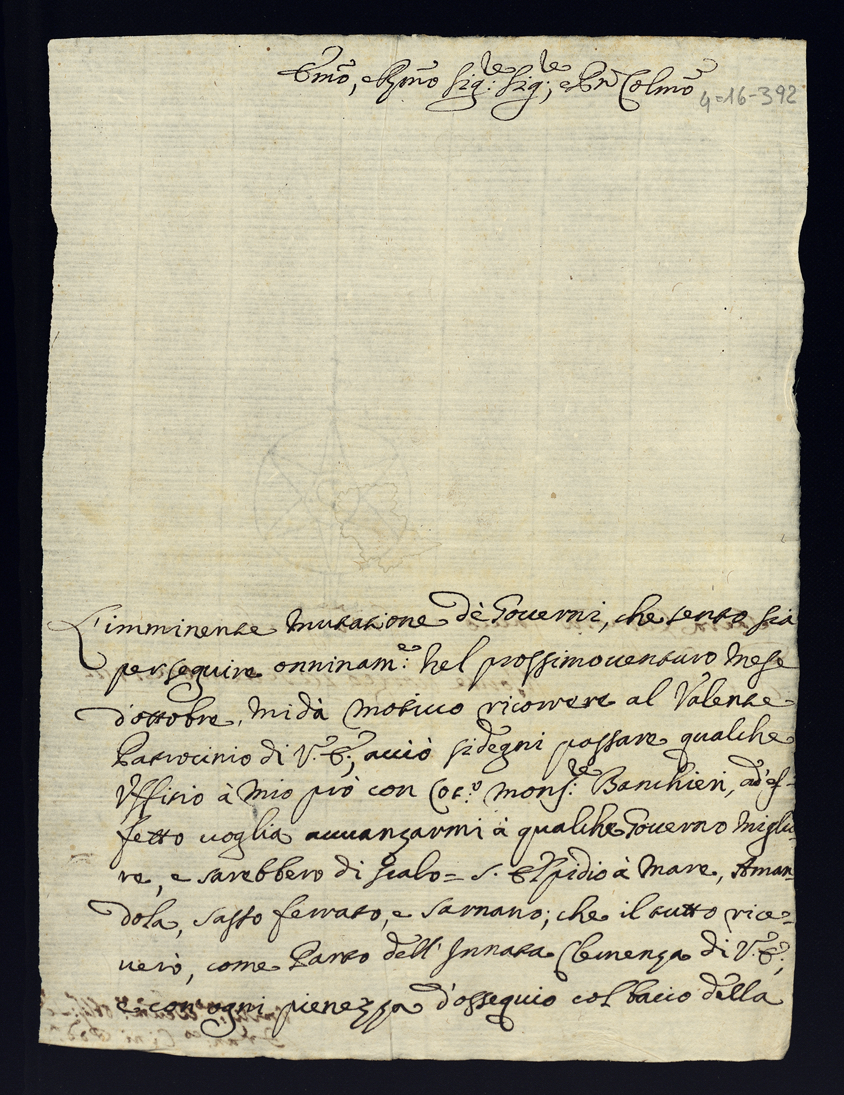 Emo, e Rmo Sig:re Sig:re, e Pn Colmo
4-16-392
L'imminente mutatione dè Governi, che sento sia
per seguire onninam:e nel prossimo venturo mese
d'ottobre, mi dà motivo ricorrere al Valente
Patrocinio di V.E:, acciò si degni passare qualche
Uffitio à mio prò con Mons:re Banchieri, ad'ef-
fetto voglia avvanzarmi à qualche Governo miglio
re, e sarebbero di scalo= S. Elpidio à mare, Aman=
dola, Sasso ferrato, e Sarnano; che il tutto rice=
verò, come Parto dell'Innata Clemenza di V.E:,
e con ogni pienezza d'ossequio col bacio della